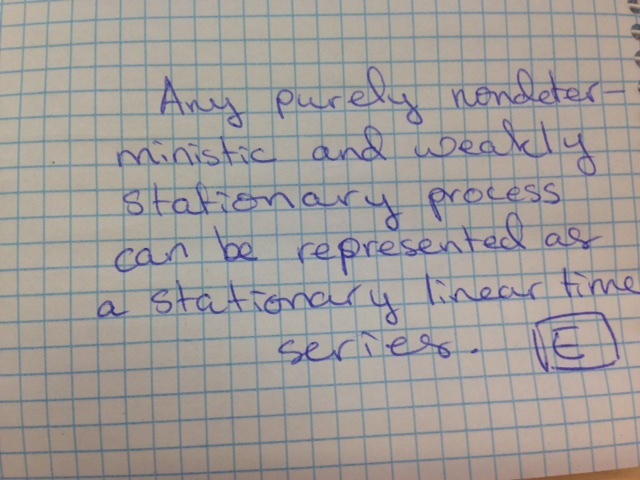 Any purely nondeter-
ministic and weakly
stationary process
can be represented as
a stationary linear time
series. E